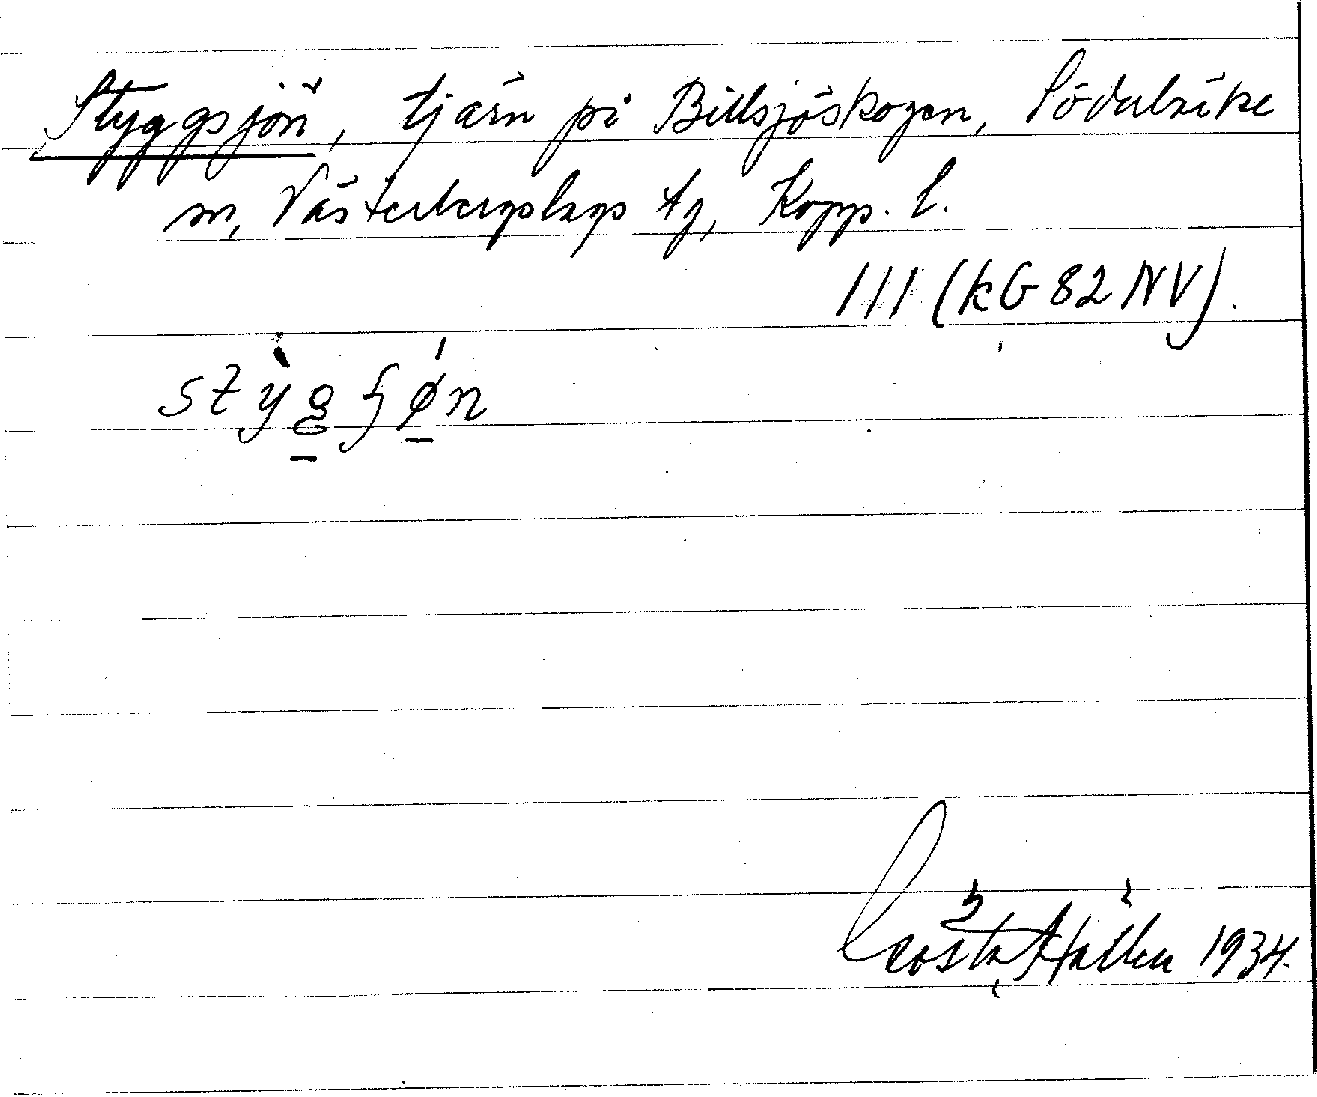 Styggsjön, tjärn på Billsjöskogen, Söderbärke
sn, Västerbergslags tg, Kopp. l.
III (kG 82 NV).
stỳg ʃǿn
Gösta Hállén 1934.